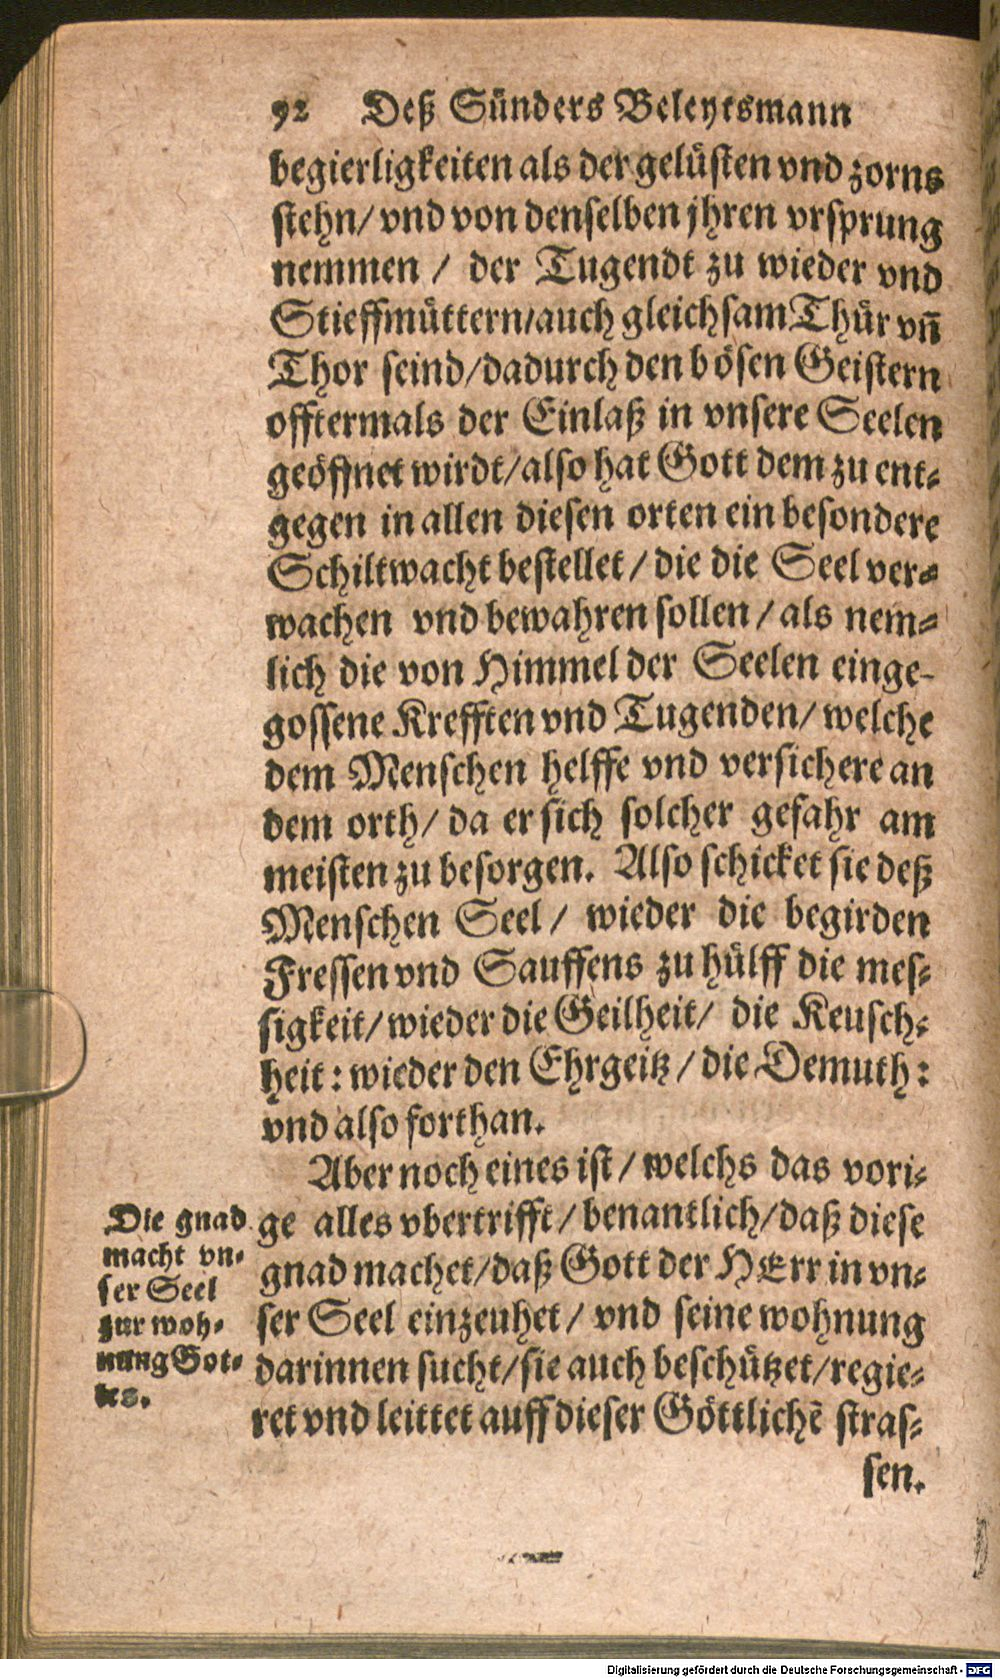 92 Deß Sünders Beleytsmann
begierligkeiten als der gelüsten vnd zorns
stehn/ vnd von denselben jhren vrsprung
nemmen / der Tugendt zu wieder vnd
Stieffmüttern/auch gleichsam Thür vn̄
Thor seind/dadurch den bösen Geistern
offtermals der Einlaß in vnsere Seelen
geöffnet wirdt/also hat Gott dem zu ent-
gegen in allen diesen orten ein besondere
Schiltwacht bestellet / die die Seel ver-
wachen vnd bewahren sollen / als nem-
lich die von Himmel der Seelen einge-
gossene Krefften vnd Tugenden/ welche
dem Menschen helffe vnd versichere an
dem orth/ da er sich solcher gefahr am
meisten zu besorgen. Also schicket sie deß
Menschen Seel / wieder die begirden
Fressen vnd Sauffens zu hülff die mes-
sigkeit/ wieder die Geilheit/ die Keusch-
heit: wieder den Ehrgeitz / die Demuth:
vnd also forthan.
Aber noch eines ist / welchs das vori-
ge alles vbertrifft/ benantlich/daß diese
gnad machet/daß Gott der HErr in vn-
ser Seel einzeuhet/ vnd seine wohnung
darinnen sucht/sie auch beschützet/regie-
ret vnd leittet auff dieser Göttlichē stras-
sen.
Die gnad
macht vn-
ser Seel
zur woh-
nung Got-
tes.
Digitalisierung gefördert durch die Deutsche Forschungsgemeinschaft - DFG